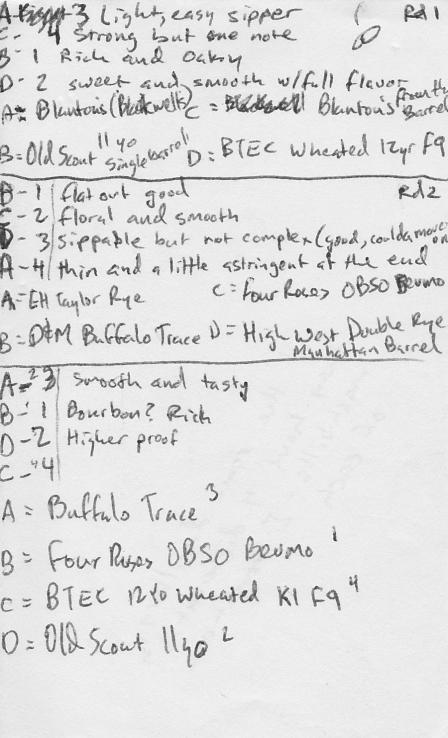 A- 3 Light, easy sipper Rd 1
C- 4 Strong but one note
B- 1 Rich and Oaky
D- 2 sweet and smooth w/full flavor
A= Blantons (Blackwells) C = Blantons from the Barrel
B= Old Scout 11 yo single barrel D= BTEC Wheated 12yr F9
B-1 flat out good Rd 2
C-2 floral and smooth
D-3 sippable but not complex (good, coulda more on
A-4 thin and a little astringent at the end
A= EH Taylor Rye C= Four Roses OBSO Bevmo
B= D&M Buffalo Trace D= High West Double Rye Manhattan Barrel
A-3 smooth and tasty
B-1 Bourbon? Rich
D-2 Higher proof
C-4
A= Buffalo Trace 3
B= Four Roses OBSO Bevmo 1
C= BTEC 12Yo Wheated K1 F9 4
D= Old Scout 11yo 2